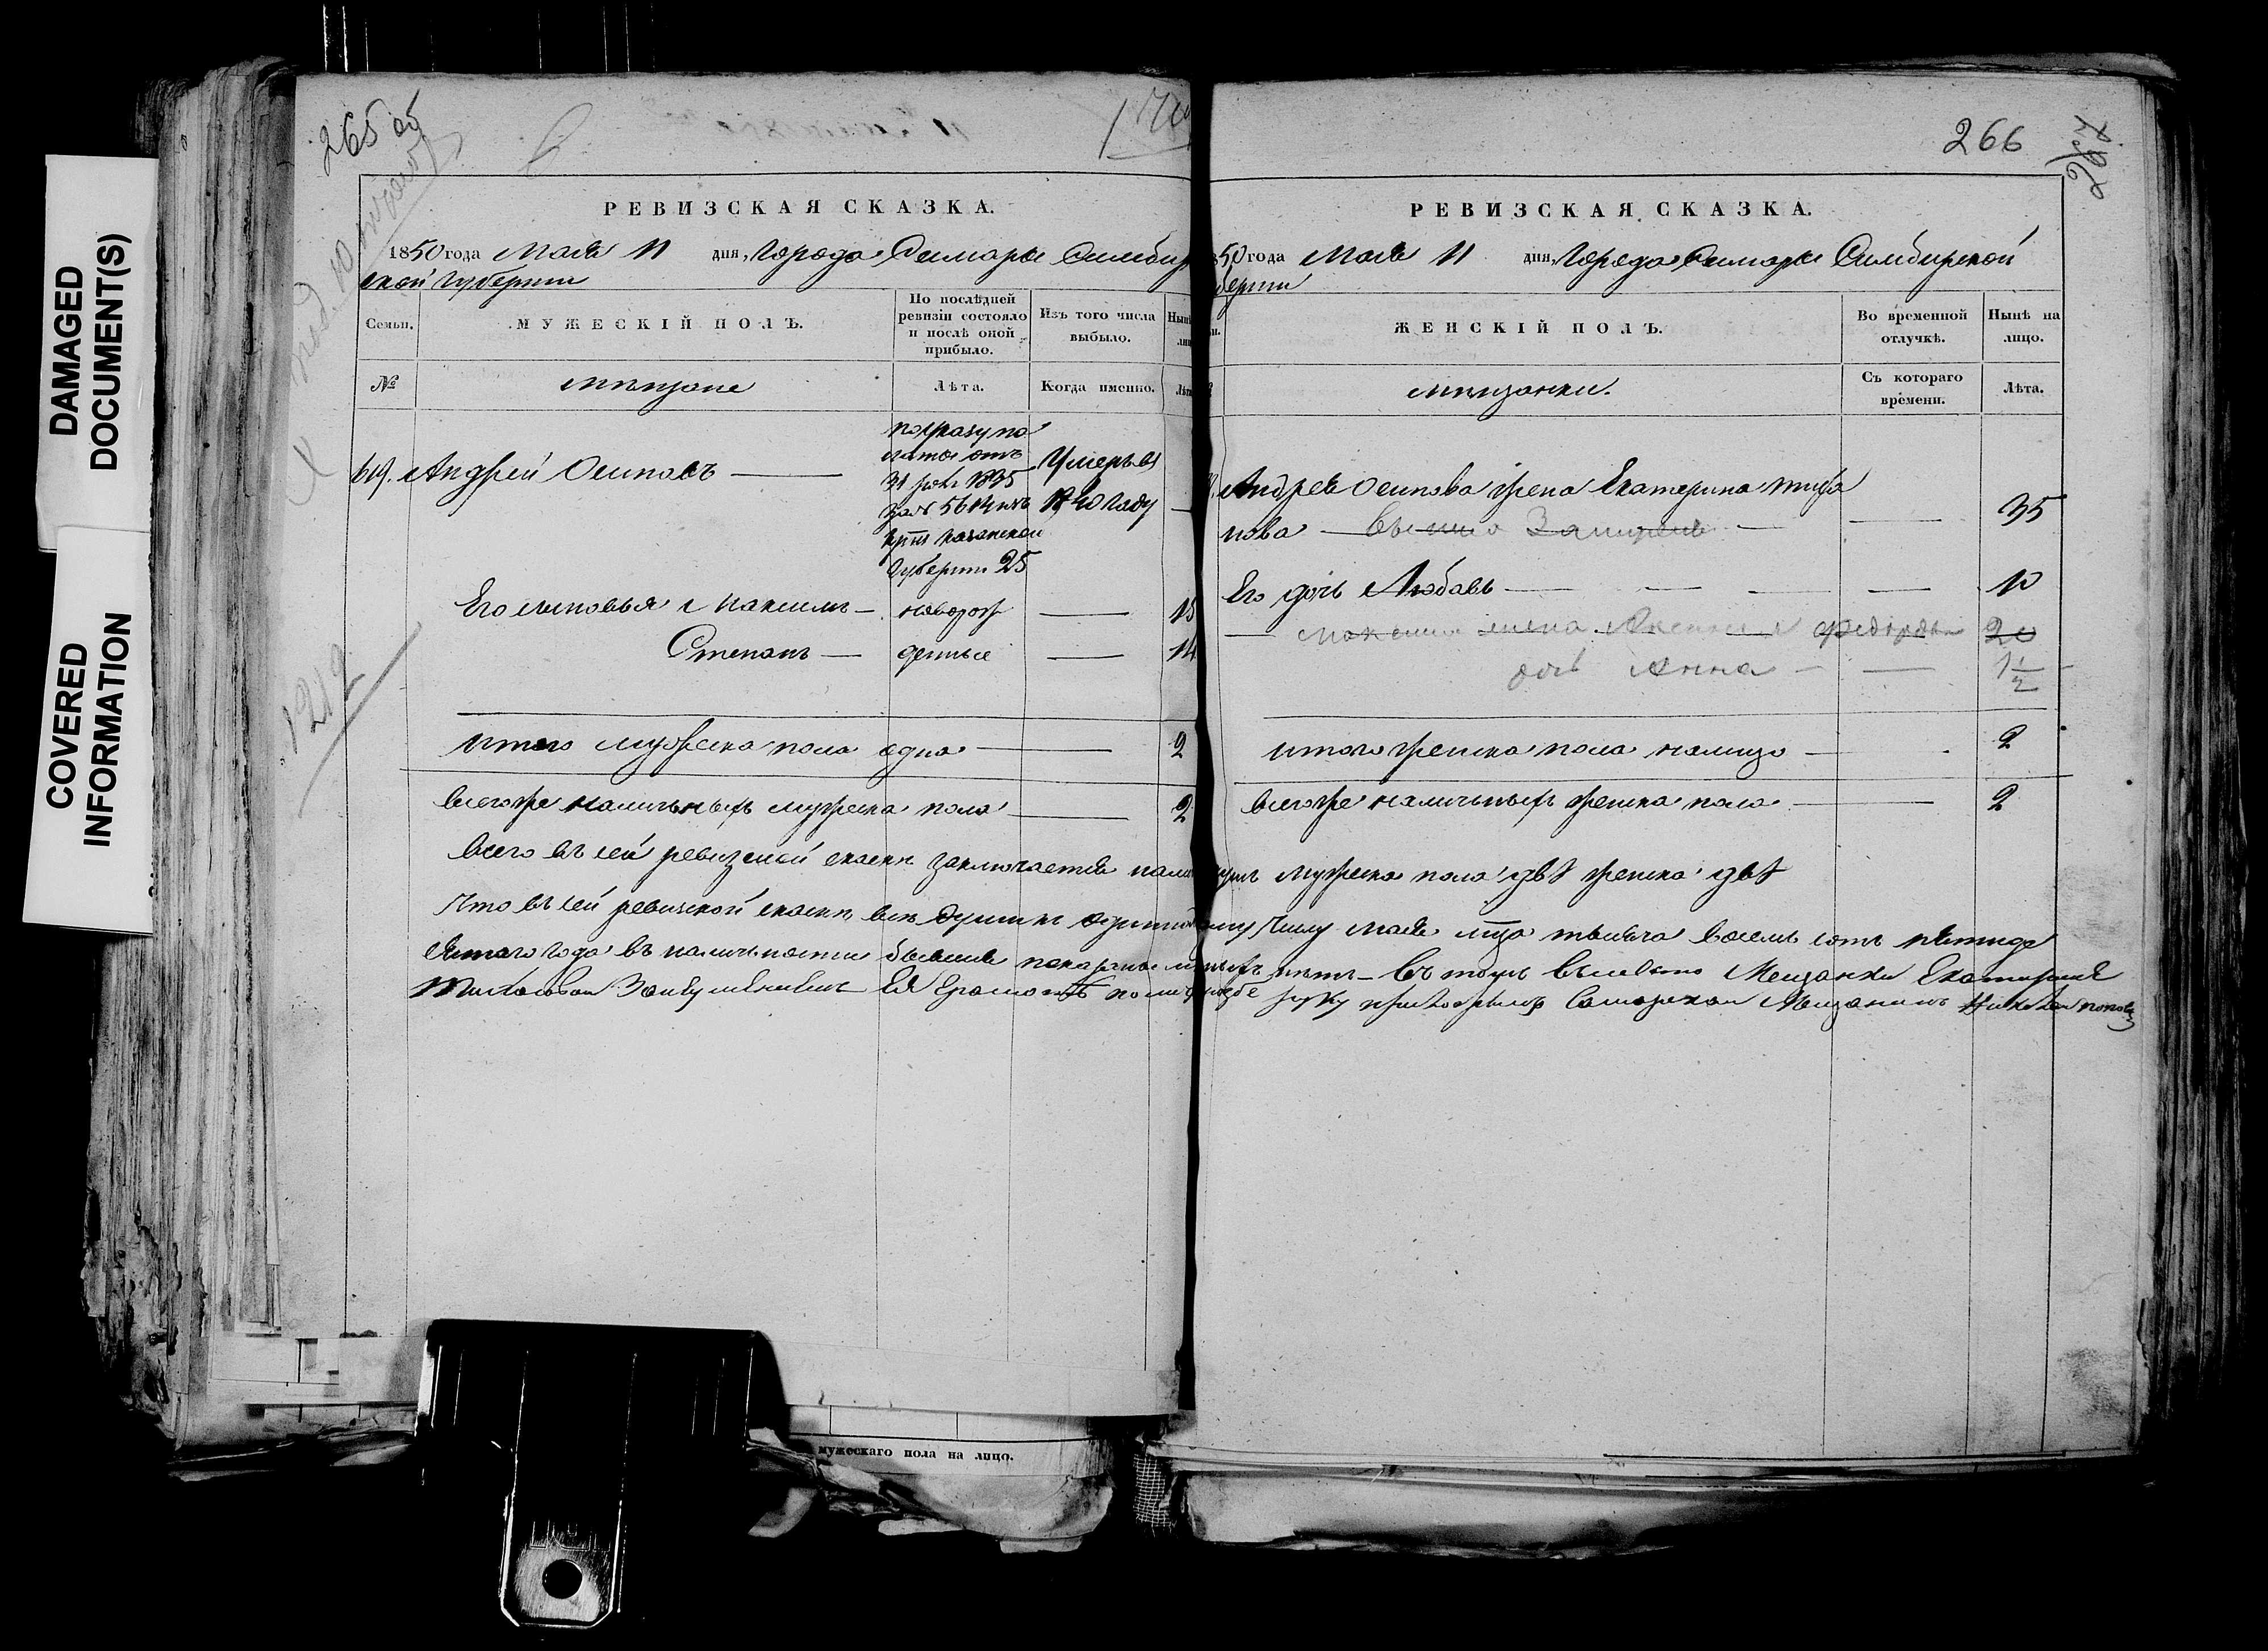 DAMAGED
DOCUMENT(S)
COVERED
INFORMATION
265 об
РЕВИЗСКАЯ СКАЗКА.
1850 года Мая 11 дня, Города Самары Симбир
ской губернии
Семьи.
МУЖЕСКІЙ ПОЛЪ.
По послѣдней
ревизіи состояло
и послѣ оной
прибыло.
Изъ того числа
выбыло.
№
мещане
Лѣта.
Когда именно.
619. Андрей Осиповъ
по указу па
латы отъ
31 1835
за № 5614 изъ
казанской
губернии 25
Умеръ въ
1840 году
Его сыновья 1 Максимъ
новорож
15
Степанъ
денные
14
итого мужеска пола одна
2
всего же наличныхъ мужеска пола
2
1212
266
РЕВИЗСКАЯ СКАЗКА.
50 года Мая 11 дня, Города Самары Симбирской
бернии
ЖЕНСКІЙ ПОЛЪ.
Во временной
отлучкѣ.
Нынѣ на
лицо.
мещанки.
Съ котораго
времени.
Лѣта.
Андрея Осипова жена Екатерина
нова
35
Его дочь Любавь
10
Максима жена Федорова 20
дочь Анна
1 1/2
итого женска пола налицо
2
всего же наличныхъ женска пола
2
всего въ сей ревизской сказки заключается мужеска пола двѣ женска двѣ
Что въ сей ревизской сказки все души къ числу мая мца тысяча восемь сотъ пятиде
сятаго года въ наличности бывшия показаны въ томъ Мещанки Екатерине
по руку приложилъ Самарской Мещанинъ Николай Поповъ
мужескаго пола на лицо.